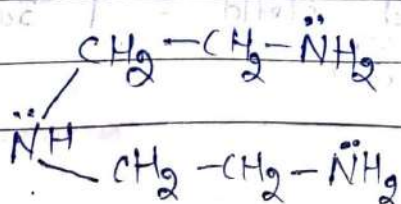 CH2-CH2-N̈H2
N̈H
CH2-CH2-N̈H2